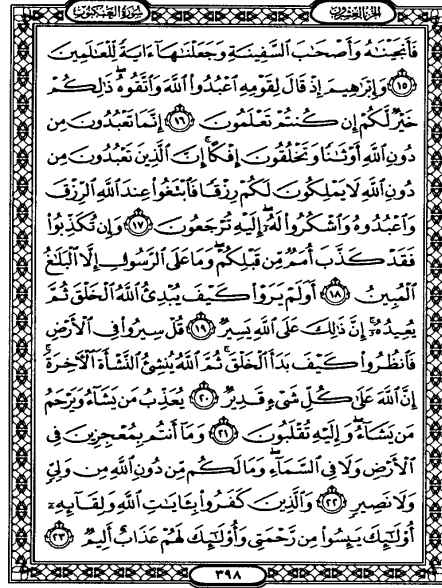 سورة العنكبوت
الجزء العشرون
فَأَنجَيْنَٰهُ وَأَصْحَٰبَ ٱلسَّفِينَةِ وَجَعَلْنَٰهَآ ءَايَةً لِّلْعَٰلَمِينَ
١٥ وَإِبْرَٰهِيمَ إِذْ قَالَ لِقَوْمِهِ ٱعْبُدُوا۟ ٱللَّهَ وَٱتَّقُوهُ ۖ ذَٰلِكُمْ
خَيْرٌ لَّكُمْ إِن كُنتُمْ تَعْلَمُونَ ١٦ إِنَّمَا تَعْبُدُونَ مِن
دُونِ ٱللَّهِ أَوْثَٰنًا وَتَخْلُقُونَ إِفْكًا ۚ إِنَّ ٱلَّذِينَ تَعْبُدُونَ مِن
دُونِ ٱللَّهِ لَا يَمْلِكُونَ لَكُمْ رِزْقًا فَٱبْتَغُوا۟ عِندَ ٱللَّهِ ٱلرِّزْقَ
وَٱعْبُدُوهُ وَٱشْكُرُوا۟ لَهُۥٓ ۖ إِلَيْهِ تُرْجَعُونَ ١٧ وَإِن تُكَذِّبُوا۟
فَقَدْ كَذَّبَ أُمَمٌ مِّن قَبْلِكُمْ ۖ وَمَا عَلَى ٱلرَّسُولِ إِلَّا ٱلْبَلَٰغُ
ٱلْمُبِينُ ١٨ أَوَلَمْ يَرَوْا۟ كَيْفَ يُبْدِئُ ٱللَّهُ ٱلْخَلْقَ ثُمَّ
يُعِيدُهُۥٓ ۚ إِنَّ ذَٰلِكَ عَلَى ٱللَّهِ يَسِيرٌ ١٩ قُلْ سِيرُوا۟ فِى ٱلْأَرْضِ
فَٱنظُرُوا۟ كَيْفَ بَدَأَ ٱلْخَلْقَ ۚ ثُمَّ ٱللَّهُ يُنشِئُ ٱلنَّشْأَةَ ٱلْءَاخِرَةَ ۚ
إِنَّ ٱللَّهَ عَلَىٰ كُلِّ شَىْءٍ قَدِيرٌ ٢٠ يُعَذِّبُ مَن يَشَآءُ وَيَرْحَمُ
مَن يَشَآءُ ۖ وَإِلَيْهِ تُقْلَبُونَ ٢١ وَمَآ أَنتُم بِمُعْجِزِينَ فِى
ٱلْأَرْضِ وَلَا فِى ٱلسَّمَآءِ ۖ وَمَا لَكُم مِّن دُونِ ٱللَّهِ مِن وَلِىٍّ
وَلَا نَصِيرٍ ٢٢ وَٱلَّذِينَ كَفَرُوا۟ بِـَٔايَٰتِ ٱللَّهِ وَلِقَآئِهِۦٓ
أُو۟لَٰٓئِكَ يَئِسُوا۟ مِن رَّحْمَتِى وَأُو۟لَٰٓئِكَ لَهُمْ عَذَابٌ أَلِيمٌ ٢٣
٣٩٨